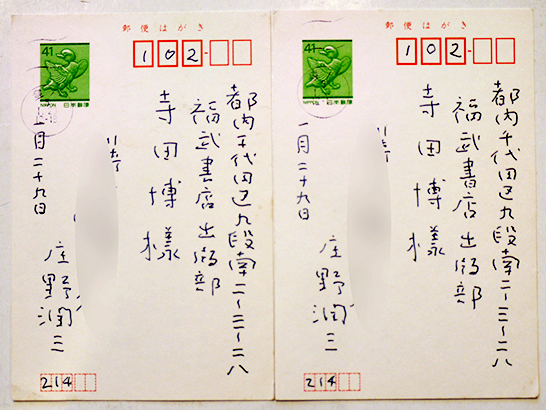 郵便はがき
41
NIPPON 日本郵便
102
都内千代田区九段南二ー三ー二八
福武書店出版部
寺田博様
庄野潤三
一月二十九日
214
郵便はがき
41
NIPPON 日本郵便
102
都内千代田区九段南二ー三ー二八
福武書店出版部
寺田博様
庄野潤三
一月二十九日
214